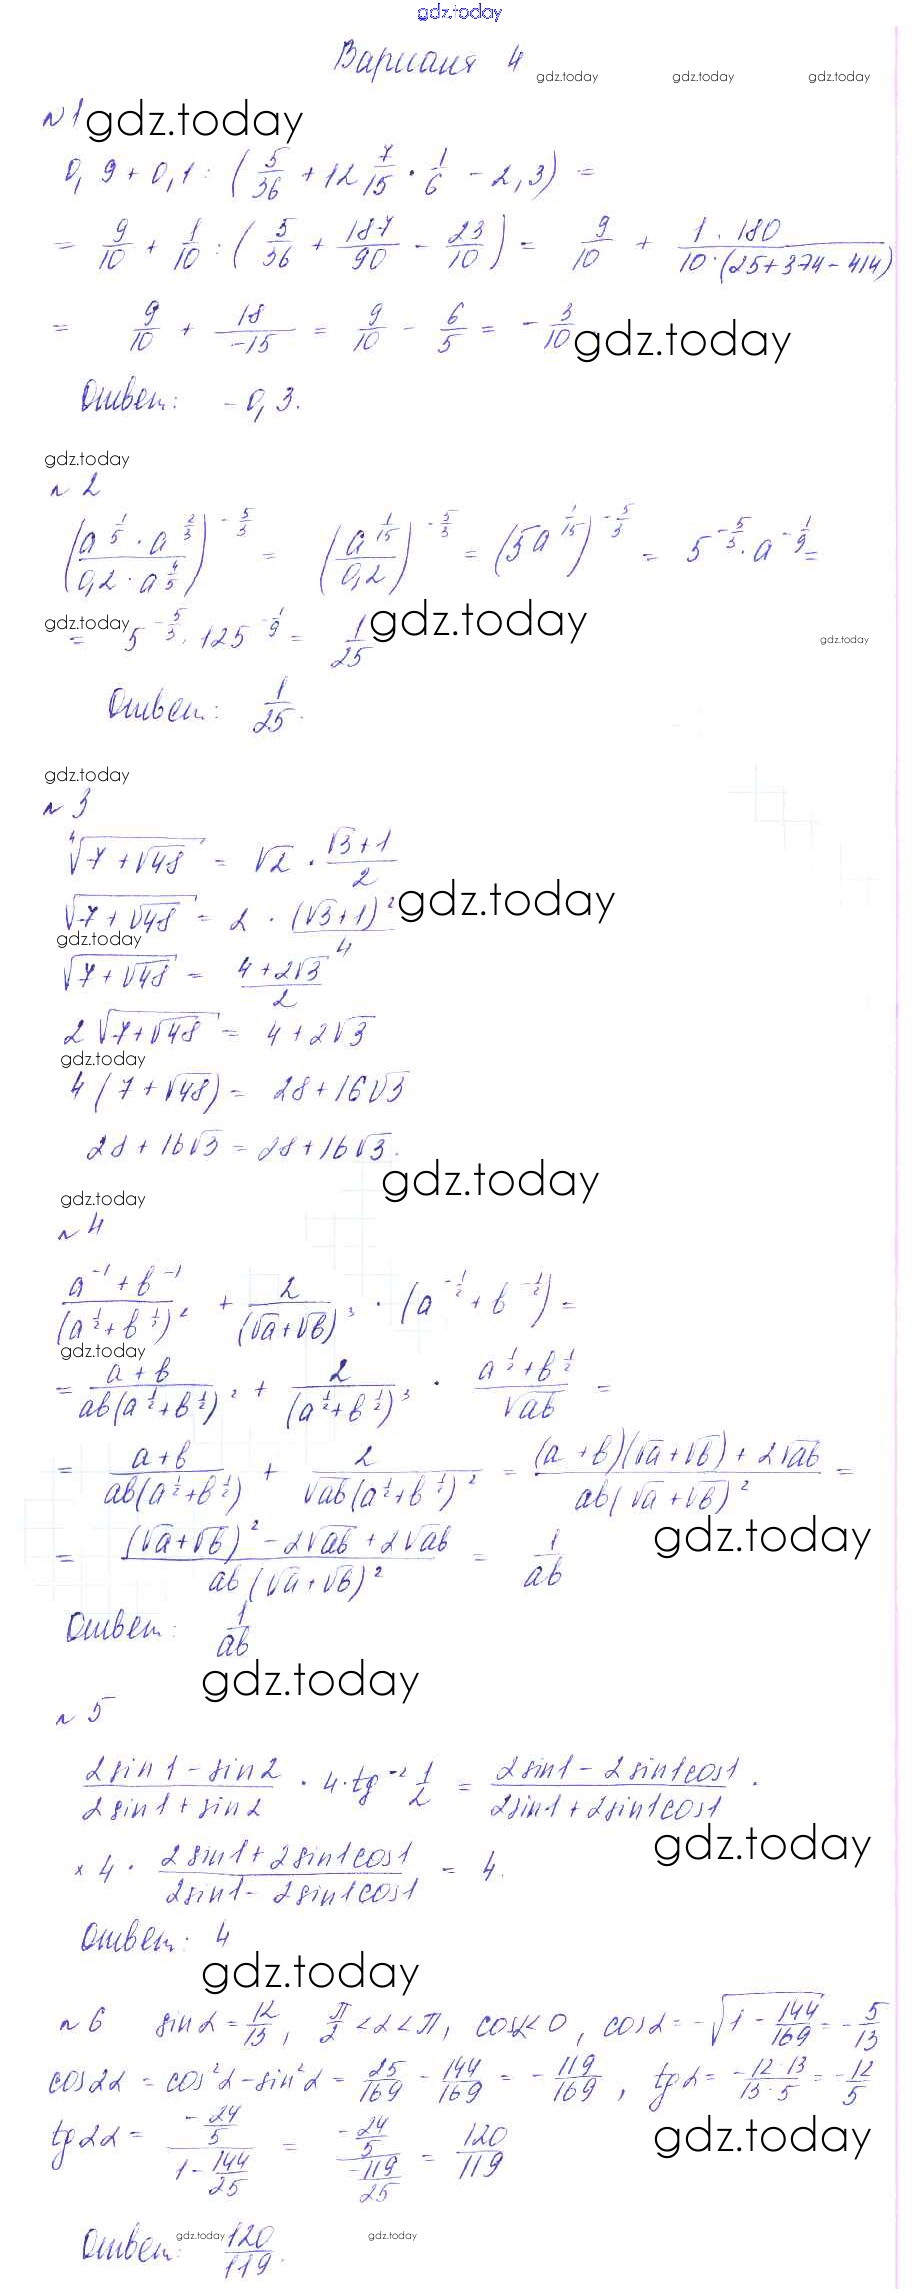 gdz.today
Вариант 4
gdz.today gdz.today gdz.today
№1 gdz.today
0,9 + 0,1 : (5/36 + 12 7/15 · 1/6 - 2,3) =
= 9/10 + 1/10 : (5/36 + 187/90 - 23/10) = 9/10 + 1·180/10·(25+374-414)
= 9/10 + 18/-15 = 9/10 - 6/5 = -3/10 gdz.today
Ответ: -0,3.
gdz.today
№2
(a^(1/5) · a^(2/3) / 0,2 · a^(4/5))^(-5/3) = (a^(1/15) / 0,2)^(-5/3) = (5a^(1/15))^(-5/3) = 5^(-5/3) · a^(-1/9) =
gdz.today = 5^(-5/3) · 125^(-1/9) = 1/25 gdz.today gdz.today
Ответ: 1/25.
gdz.today
№3
⁴√(7 + √48) = √2 · (√3+1)/2
√(7 + √48) = 2 · (√3+1)²/4 gdz.today
gdz.today
√(7 + √48) = (4+2√3)/2
2√(7+√48) = 4+2√3
gdz.today
4(7+√48) = 28+16√3
28+16√3 = 28+16√3.
gdz.today
gdz.today
№4
(a^(-1) + b^(-1))/(a^(1/2) + b^(1/2))² + 2/(√a+√b)³ · (a^(-1/2) + b^(-1/2)) =
gdz.today
= (a+b)/(ab(a^(1/2)+b^(1/2))²) + 2/(a^(1/2)+b^(1/2))³ · (a^(1/2)+b^(1/2))/√ab =
= (a+b)/(ab(a^(1/2)+b^(1/2))) + 2/(√ab(a^(1/2)+b^(1/2))²) = ((a+b)(√a+√b)+2√ab)/(ab(√a+√b)²) =
gdz.today
= ((√a+√b)² - 2√ab + 2√ab)/(ab(√a+√b)²) = 1/ab
Ответ: 1/ab
gdz.today
№5
(2sin1 - sin2)/(2sin1 + sin2) · 4·tg^(-2) 1/2 = (2sin1 - 2sin1cos1)/(2sin1 + 2sin1cos1) ·
gdz.today
× 4 · (2sin1 + 2sin1cos1)/(2sin1 - 2sin1cos1) = 4.
Ответ: 4
gdz.today
№6 sinα = 12/13, π/2 < α < π, cosα < 0, cosα = -√(1 - 144/169) = -5/13
cos2α = cos²α - sin²α = 25/169 - 144/169 = -119/169, tgα = -12·13/13·5 = -12/5
tg2α = (-24/5)/(1 - 144/25) = (-24/5)/(-119/25) = 120/119 gdz.today
Ответ: gdz.today 120/119. gdz.today